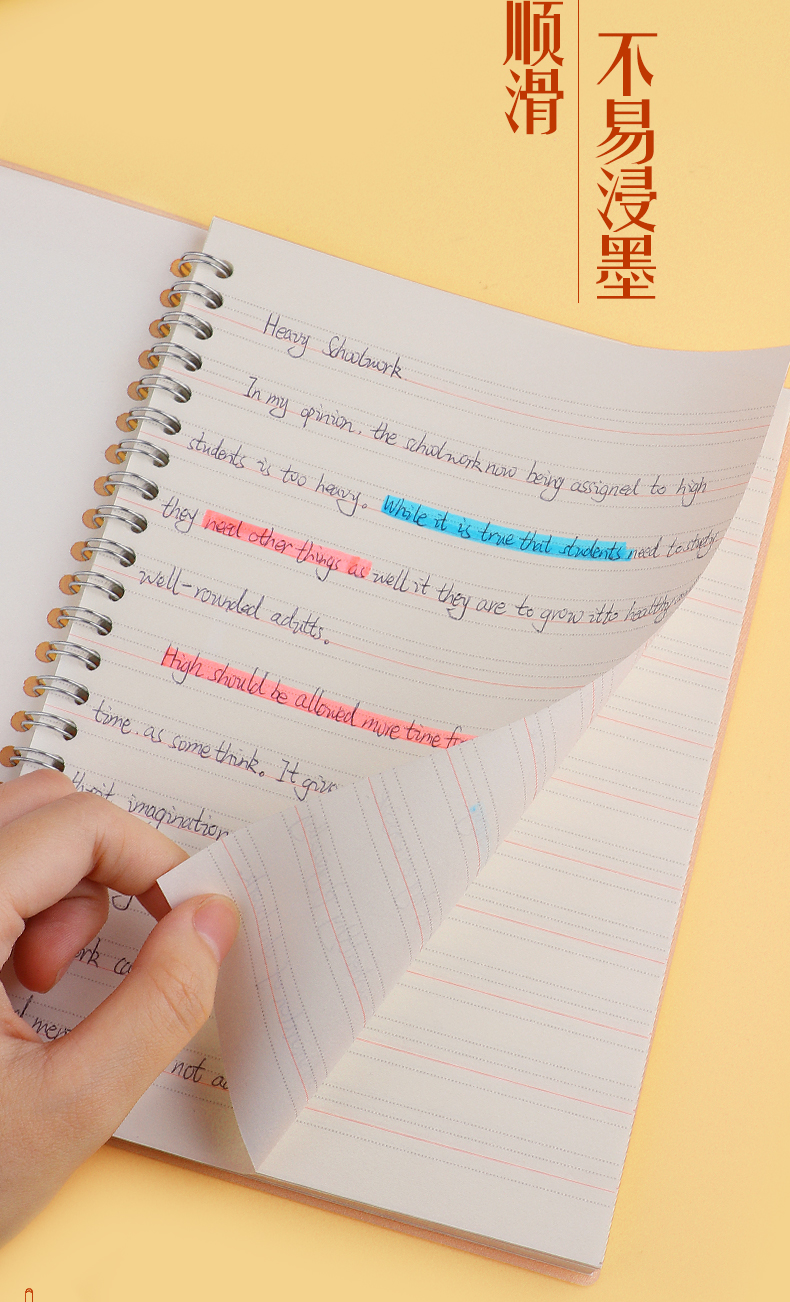 不易浸墨
顺滑
Heavy Schoolwork.
In my opinion, the schoolwork now being assigned to high
students is too heavy. While it is true that students need to study
they need other things as well it they are to grow itto healthy
well-rounded adults.
High should be allowed more time
time. as some think. It give
imagination
not